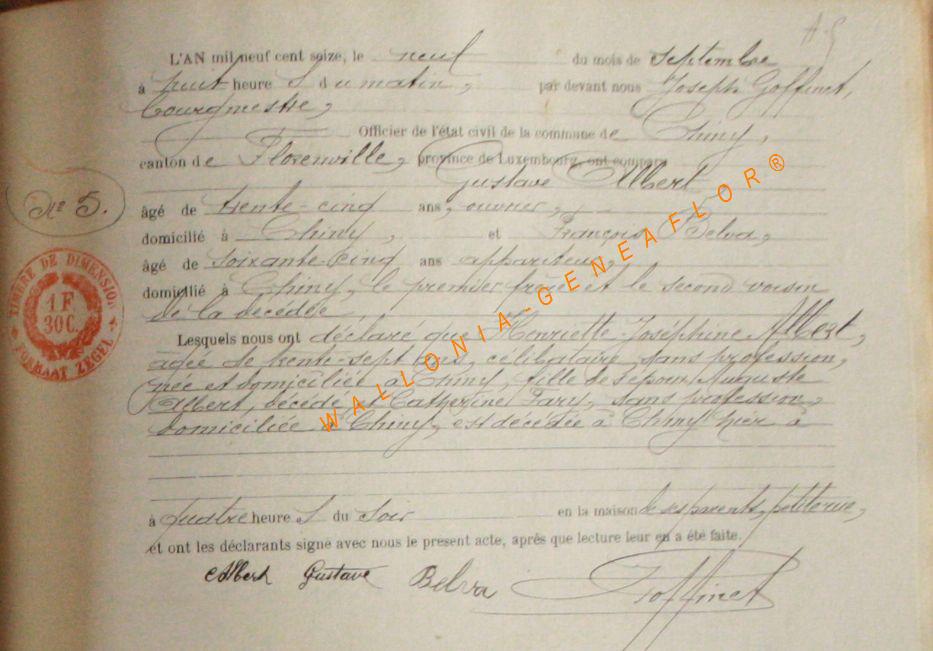 L'AN mil neuf cent seize, le neuf du mois de septembre
à huit heure s du matin, par devant nous Joseph Goffinet,
bourgmestre,
Officier de l'état civil de la commune de Chiny,
canton de Florenville, province de Luxembourg, ont comparu
Gustave Albert
âgé de trente-cinq ans, ouvrier,
domicilié à Chiny, et François Belva,
âgé de soixante-cinq ans appariteur,
domicilié à Chiny, le premier frère et le second voisin
de la décédée,
Lesquels nous ont déclaré que Henriette Joséphine Albert,
âgée de trente-sept ans, célibataire, sans profession,
née et domiciliée à Chiny, fille de Auguste
Albert, décédé et Catherine sans profession,
domiciliée à Chiny, est décédée à Chiny hier à
à quatre heure s du soir en la maison de ses parents, petite rue,
et ont les déclarants signé avec nous le present acte, après que lecture leur en a été faite.
Albert Gustave Belva Goffinet
N° 5.
TIMBRE DE DIMENSION
1 F
30 C.
FORMAAT ZEGEL
WALLONIA-GENEAFLOR®